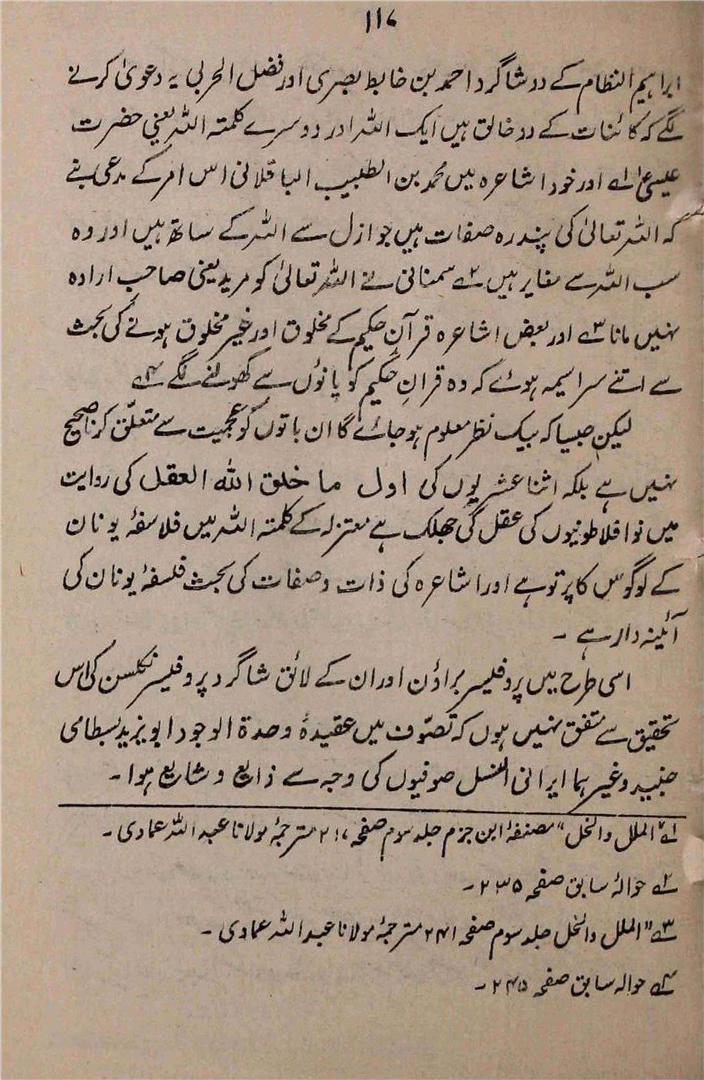 ۱۱۷
ابراہیم النظام کے دو شاگرد احمد بن خابط بصری اور فضل الحربی یہ دعویٰ کرنے
لگے کہ کائنات کے دو خالق ہیں ایک اللہ اور دوسرے کلمتہ اللہ یعنی حضرت
عیسیٰؑ ۱ے اور خود اشاعرہ میں محمد بن الطبیب الباقلانی اس امر کے مدعی بنے
کہ اللہ تعالیٰ کی پندرہ صفات ہیں جو ازل سے اللہ کے ساتھ ہیں اور وہ
سب اللہ سے مغایر ہیں ۲ے سمنانی نے اللہ تعالیٰ کو مرید یعنی صاحبِ ارادہ
نہیں مانا ۳ے اور بعض اشاعرہ قرآنِ حکیم کے مخلوق اور غیر مخلوق ہونے کی بحث
سے اتنے سراسیمہ ہوئے کہ وہ قرانِ حکیم کو پانوں سے کھولنے لگے ۴ے
لیکن جیسا کہ بیک نظر معلوم ہو جائے گا ان باتوں کو عجمیت سے متعلق کرنا صحیح
نہیں ہے بلکہ اثنا عشریوں کی اول ما خلق اللہ العقل کی روایت
میں نوافلاطونیوں کی عقل کی جھلک ہے معتزلہ کے کلمتہ اللہ میں فلاسفۂ یونان
کے لوگوس کا پرتو ہے اور اشاعرہ کی ذات و صفات کی بحث فلسفۂ یونان کی
آئینہ دار ہے ۔
اسی طرح میں پروفیسر براؤن اور ان کے لائق شاگرد پروفیسر نکلسن کی اس
تحقیق سے متفق نہیں ہوں کہ تصوّف میں عقیدۂ وحدۃ الوجود ابو یزید بسطامی
جنید وغیر ہما ایرانی النسل صوفیوں کی وجہ سے ذایع و شایع ہوا ۔
۱ے "الملل والنحل" مصنفۂ ابن حزم جلد سوم صفحہ ۲۱۷ مترجمۂ مولانا عبد اللہ عمادی ۔
۲ے حوالۂ سابق صفحہ ۲۳۵ ۔
۳ے "الملل والنحل جلد سوم صفحہ ۲۴۱ مترجمۂ مولانا عبد اللہ عمادی ۔
۴ے حوالہ سابق صفحہ ۲۴۵ ۔